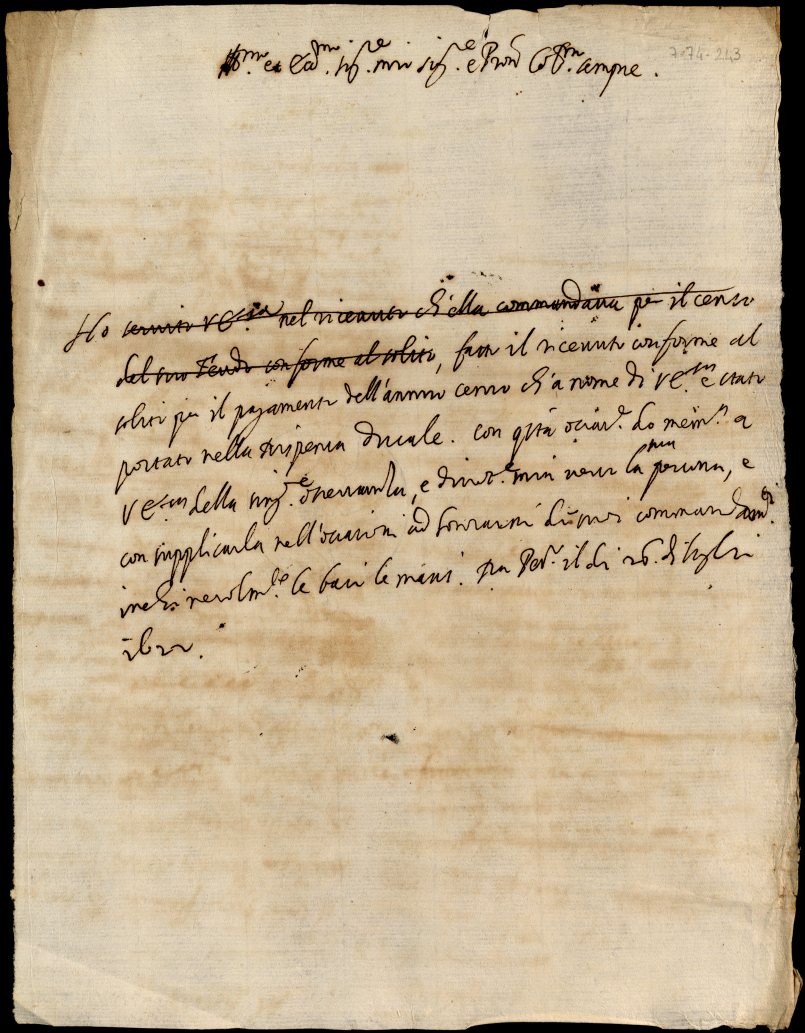 7-74-213
Ill.mo et Ecc.mo sig.re mio sig.re e Pron Col.mo sempre.
Ho servito V E.za nel ricevuto ch'ella commandava per il censo
del suo feudo conforme al solito, fatto il ricevuto conforme al
solito per il pagamento dell'annuo censo ch'a nome di V E.za è stato
portato nella dispensa ducale. con q.ta occas.e do mem.a a
V E.za della sing.e osservanza, e divot.e mia verso la sua persona, e
con supplicarla nell'occasioni ad honorarmi di suoi commandam.ti
inchinevolm.te le bacio le mani. Da il di 26. di luglio
1622.